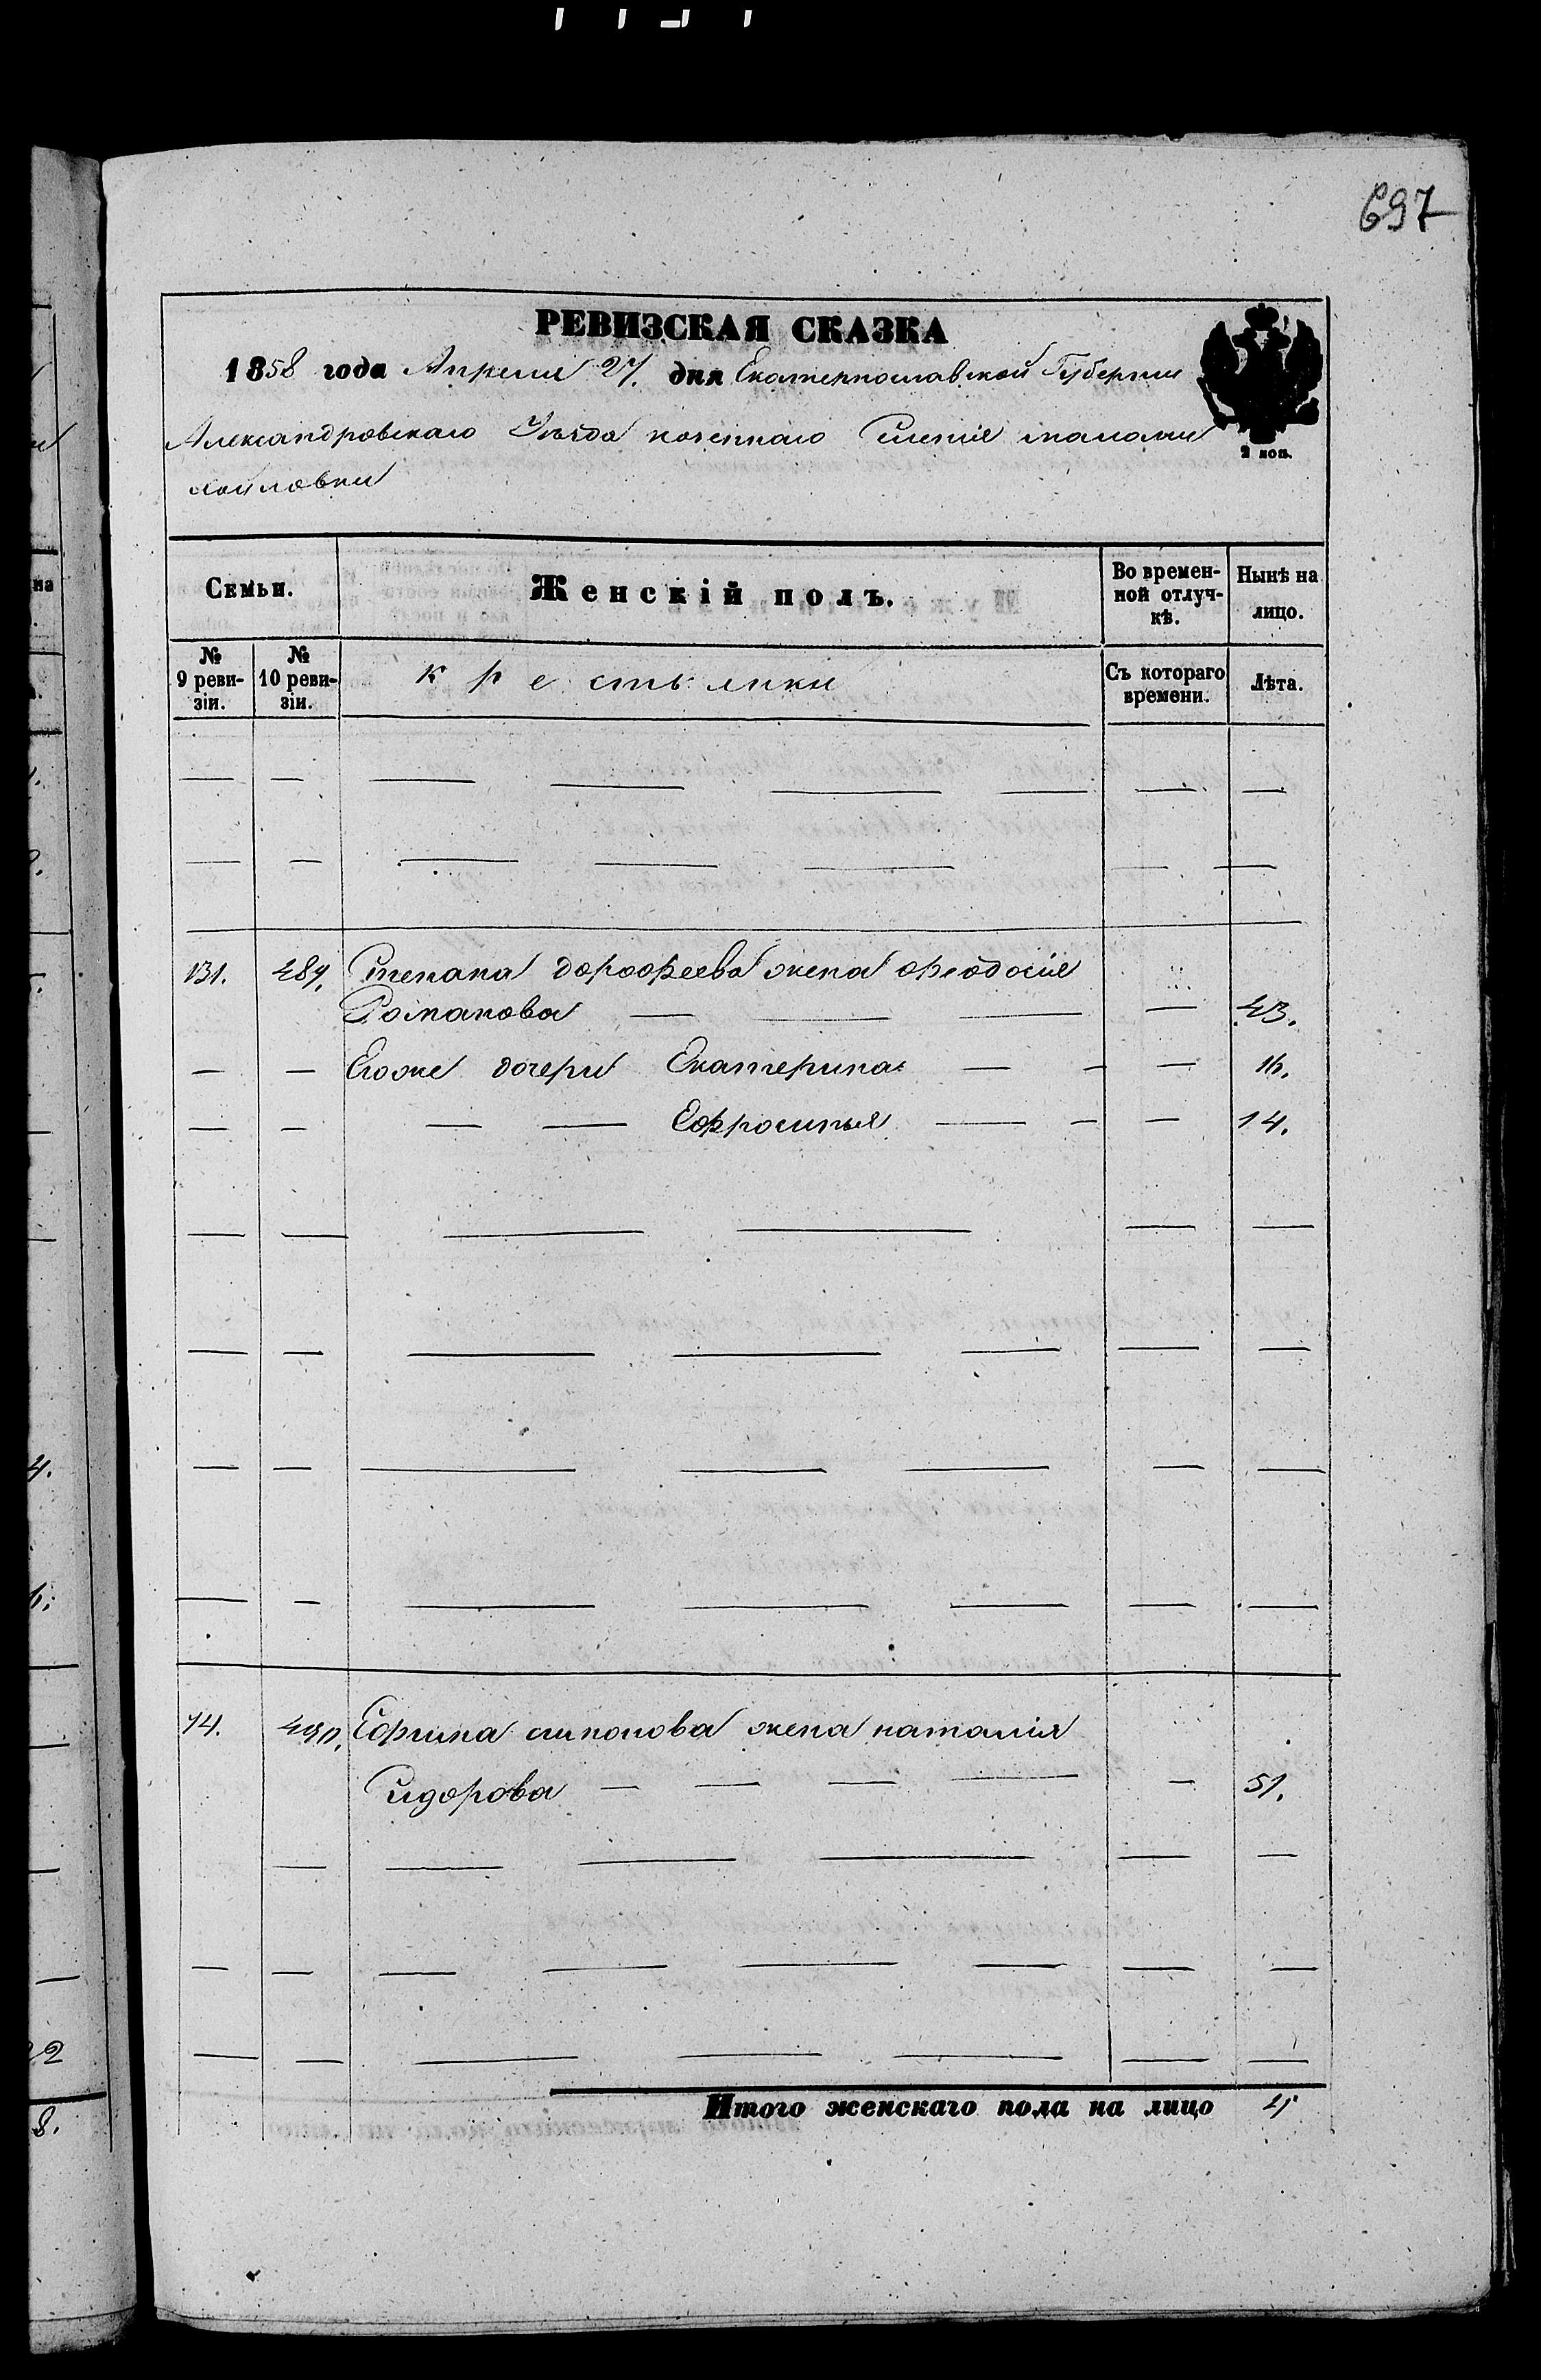 697
РЕВИЗСКАЯ СКАЗКА
1858 года Апреля 27. дня Екатеринославской Губернии
Александровскаго Уѣзда казеннаго Селенія
2 коп.
Семьи. Женскій полъ. Во времен-ной отлуч-кѣ. Нынѣ на лицо.
№ 9 реви-зіи. № 10 реви-зіи. крестьянки Съ котораго времени. Лѣта.
131. 489. Степана дорофеева жена феодосія
Романова — — — — 43.
— — Егоже дочери Екатерина — — — 16.
— — — — Ефросинья — — — 14.
74. 490. Ефима симонова жена наталія
Сидорова — — — — — 51.
Итого женскаго пола на лицо 4